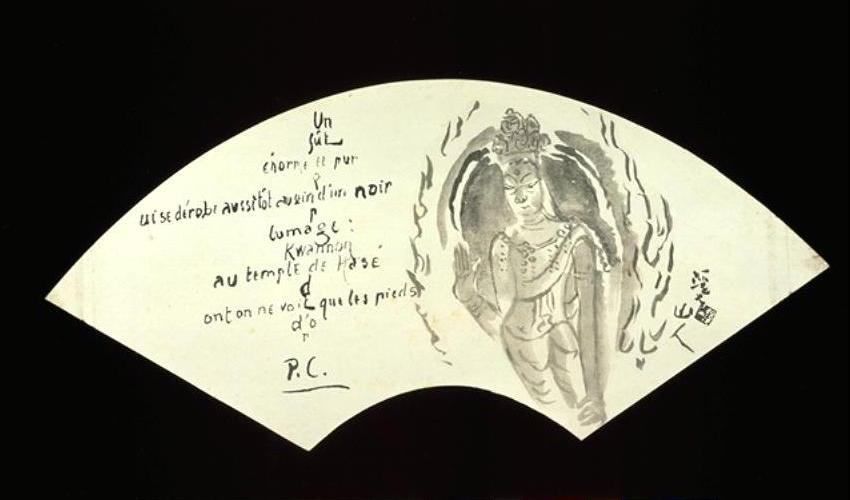 Un
fût
énorme et pur
q
ui se dérobe aussitôt au sein d'un noir
p
lumage :
Kwannon
au temple de Hasé
d
ont on ne voit que les pieds
d'o
r
P.C.
山人